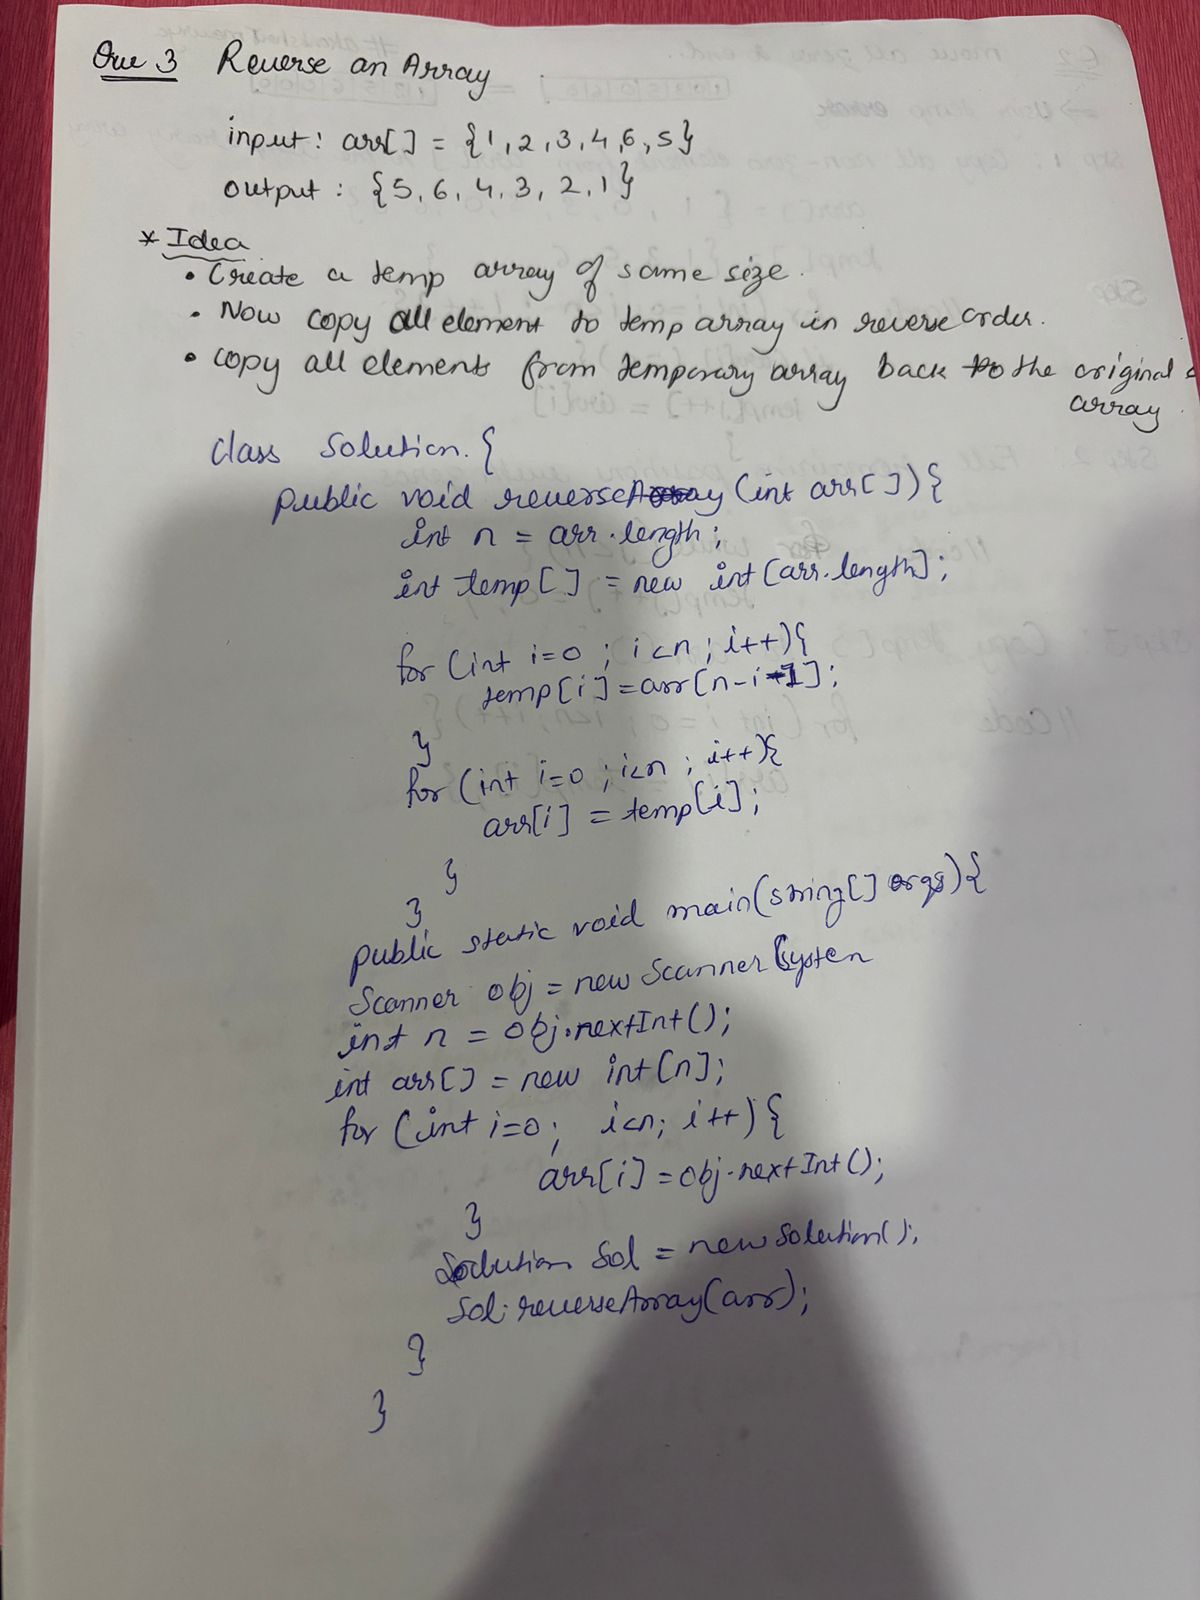 Que 3 Reverse an Array
input : arr[] = {1, 2, 3, 4, 6, 5}
output : {5, 6, 4, 3, 2, 1}
* Idea
• Create a temp array of same size.
• Now copy all element to temp array in reverse order.
• copy all elements from temporary array back to the original
array
class Solution {
public void reverseArray (int arr[]) {
int n = arr.length;
int temp[] = new int[arr.length];
for (int i=0 ; i<n ; i++){
temp[i] = arr[n-i-1];
}
for (int i=0 ; i<n ; i++){
arr[i] = temp[i];
}
}
public static void main(String[] args){
Scanner obj = new Scanner(System
int n = obj.nextInt();
int arr[] = new int[n];
for (int i=0; i<n; i++) {
arr[i] = obj.nextInt();
}
Solution Sol = new Solution();
Sol.reverseArray(arr);
}
}